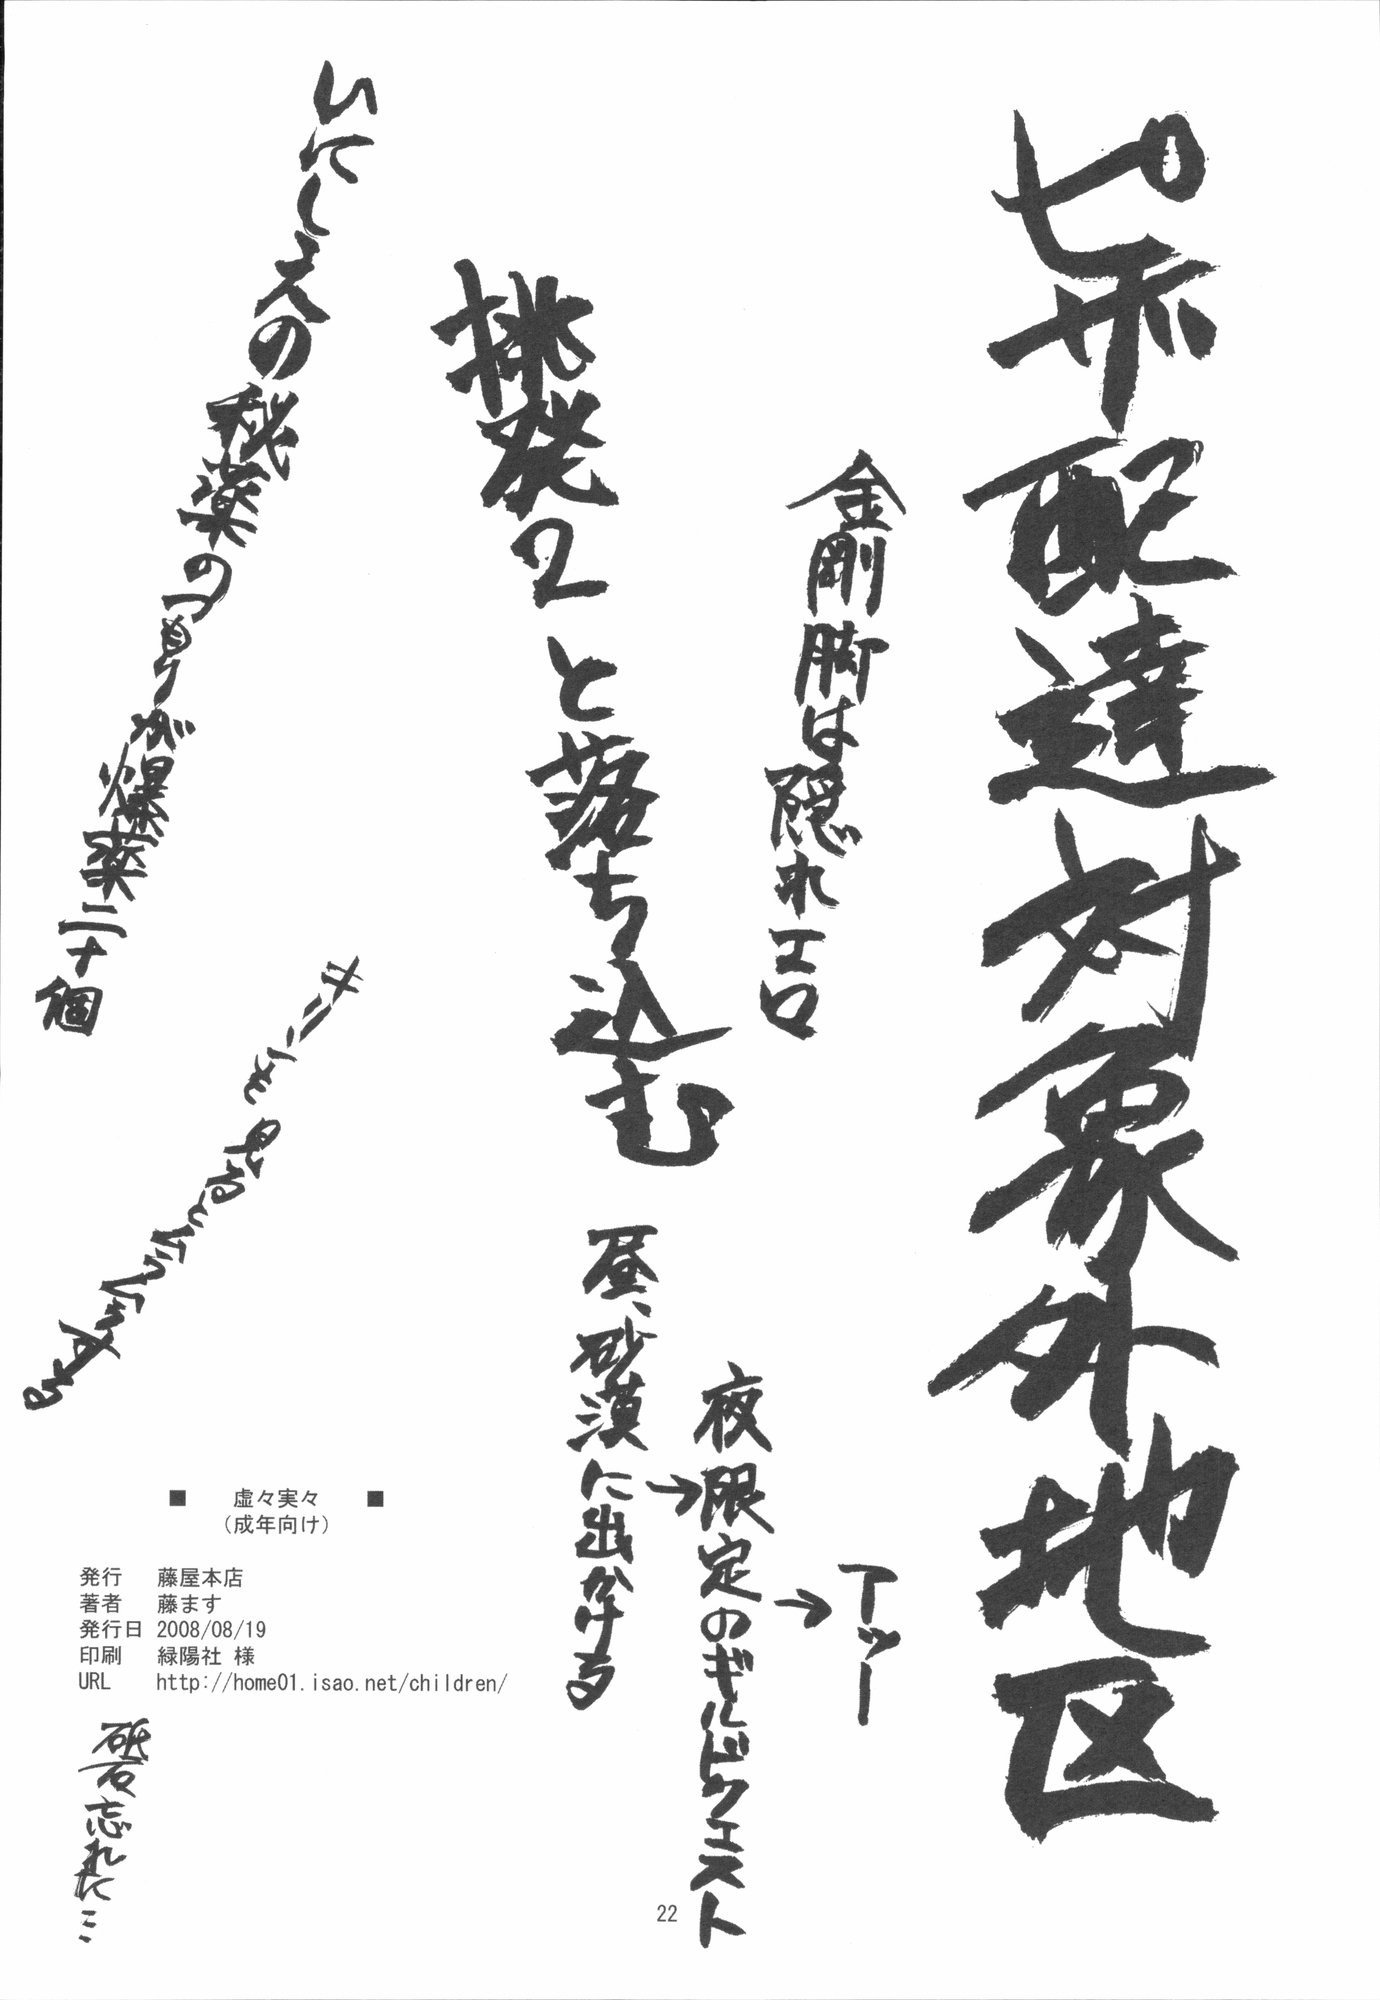 ピザ配達対象外地区
金剛脚は隠れエロ
挑発2と落ち込む
アッー
夜限定のギルドクエスト
昼、砂漠に出かける
いにしえの秘薬のつもりが爆薬二十個
キリンを見るとドキドキする
■ 虚々実々 ■
(成年向け)
発行 藤屋本店
著者 藤ます
発行日 2008/08/19
印刷 緑陽社 様
URL http://home01.isao.net/children/
砥石忘れた…
22